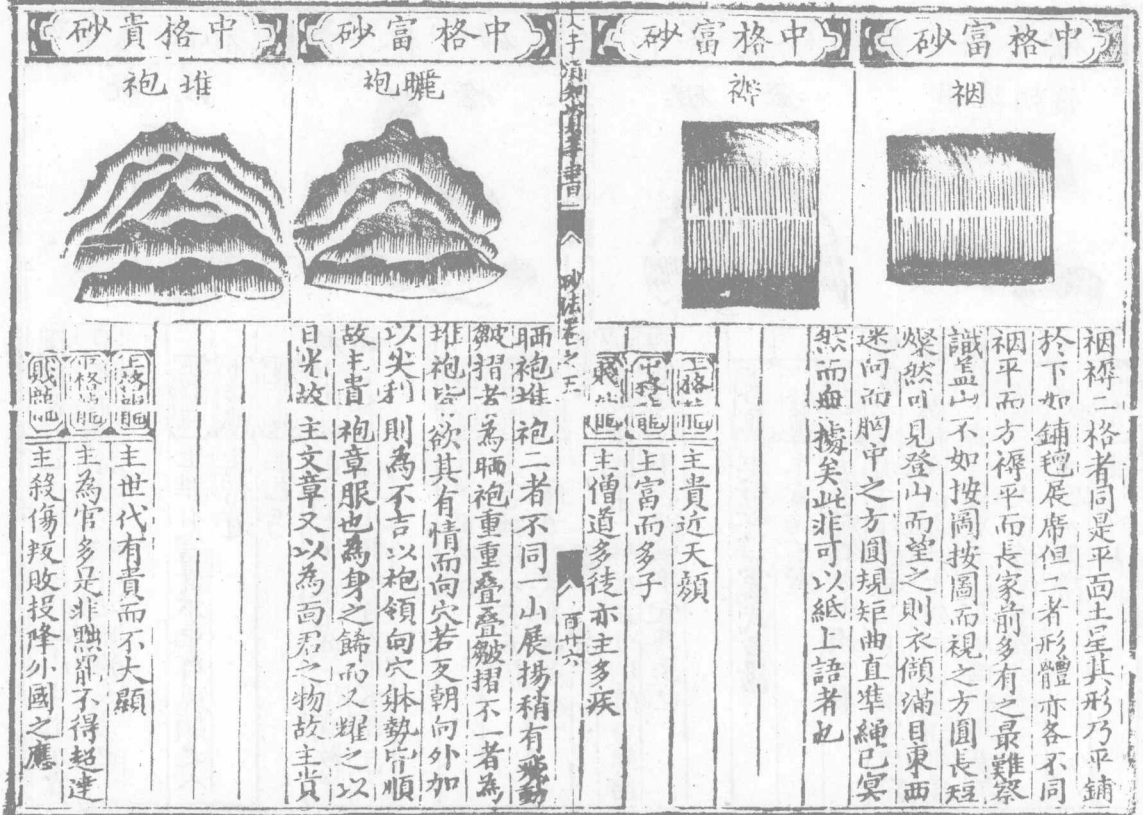 中格富砂
裀
裀褥二格者同是平面土星其形乃平鋪
於下如鋪氊展席但二者形體亦各不同
裀平而方褥平而長家前多有之最難察
識葢山不如按圖按圖而視之方圓長短
燦然可見登山而望之則衣傾滿目東西
迷向而胸中之方圓規矩曲直準繩已冥
然而無據矣此非可以紙上語者也
中格富砂
褥
上格龍 主貴近天顔
中格龍 主富而多子
賤龍 主僧道多徒亦主多疾
人子須知資孝書
砂法卷之五
百廿六
中格富砂
曬袍
晒袍堆袍二者不同一山展揚稍有飛動
皺摺者為晒袍重重叠叠皺摺不一者為
堆袍皆欲其有情而向穴若反朝向外加
以尖利則為不吉以袍領向穴牀勢皆順
故主貴袍章服也為身之餙而又耀之以
日光故主文章又以為面君之物故主貴
中格貴砂
堆袍
上格龍 主世代有貴而不大顯
中格龍 主為官多是非黜罷不得超達
賤龍 主殺傷叛敗投降外國之應